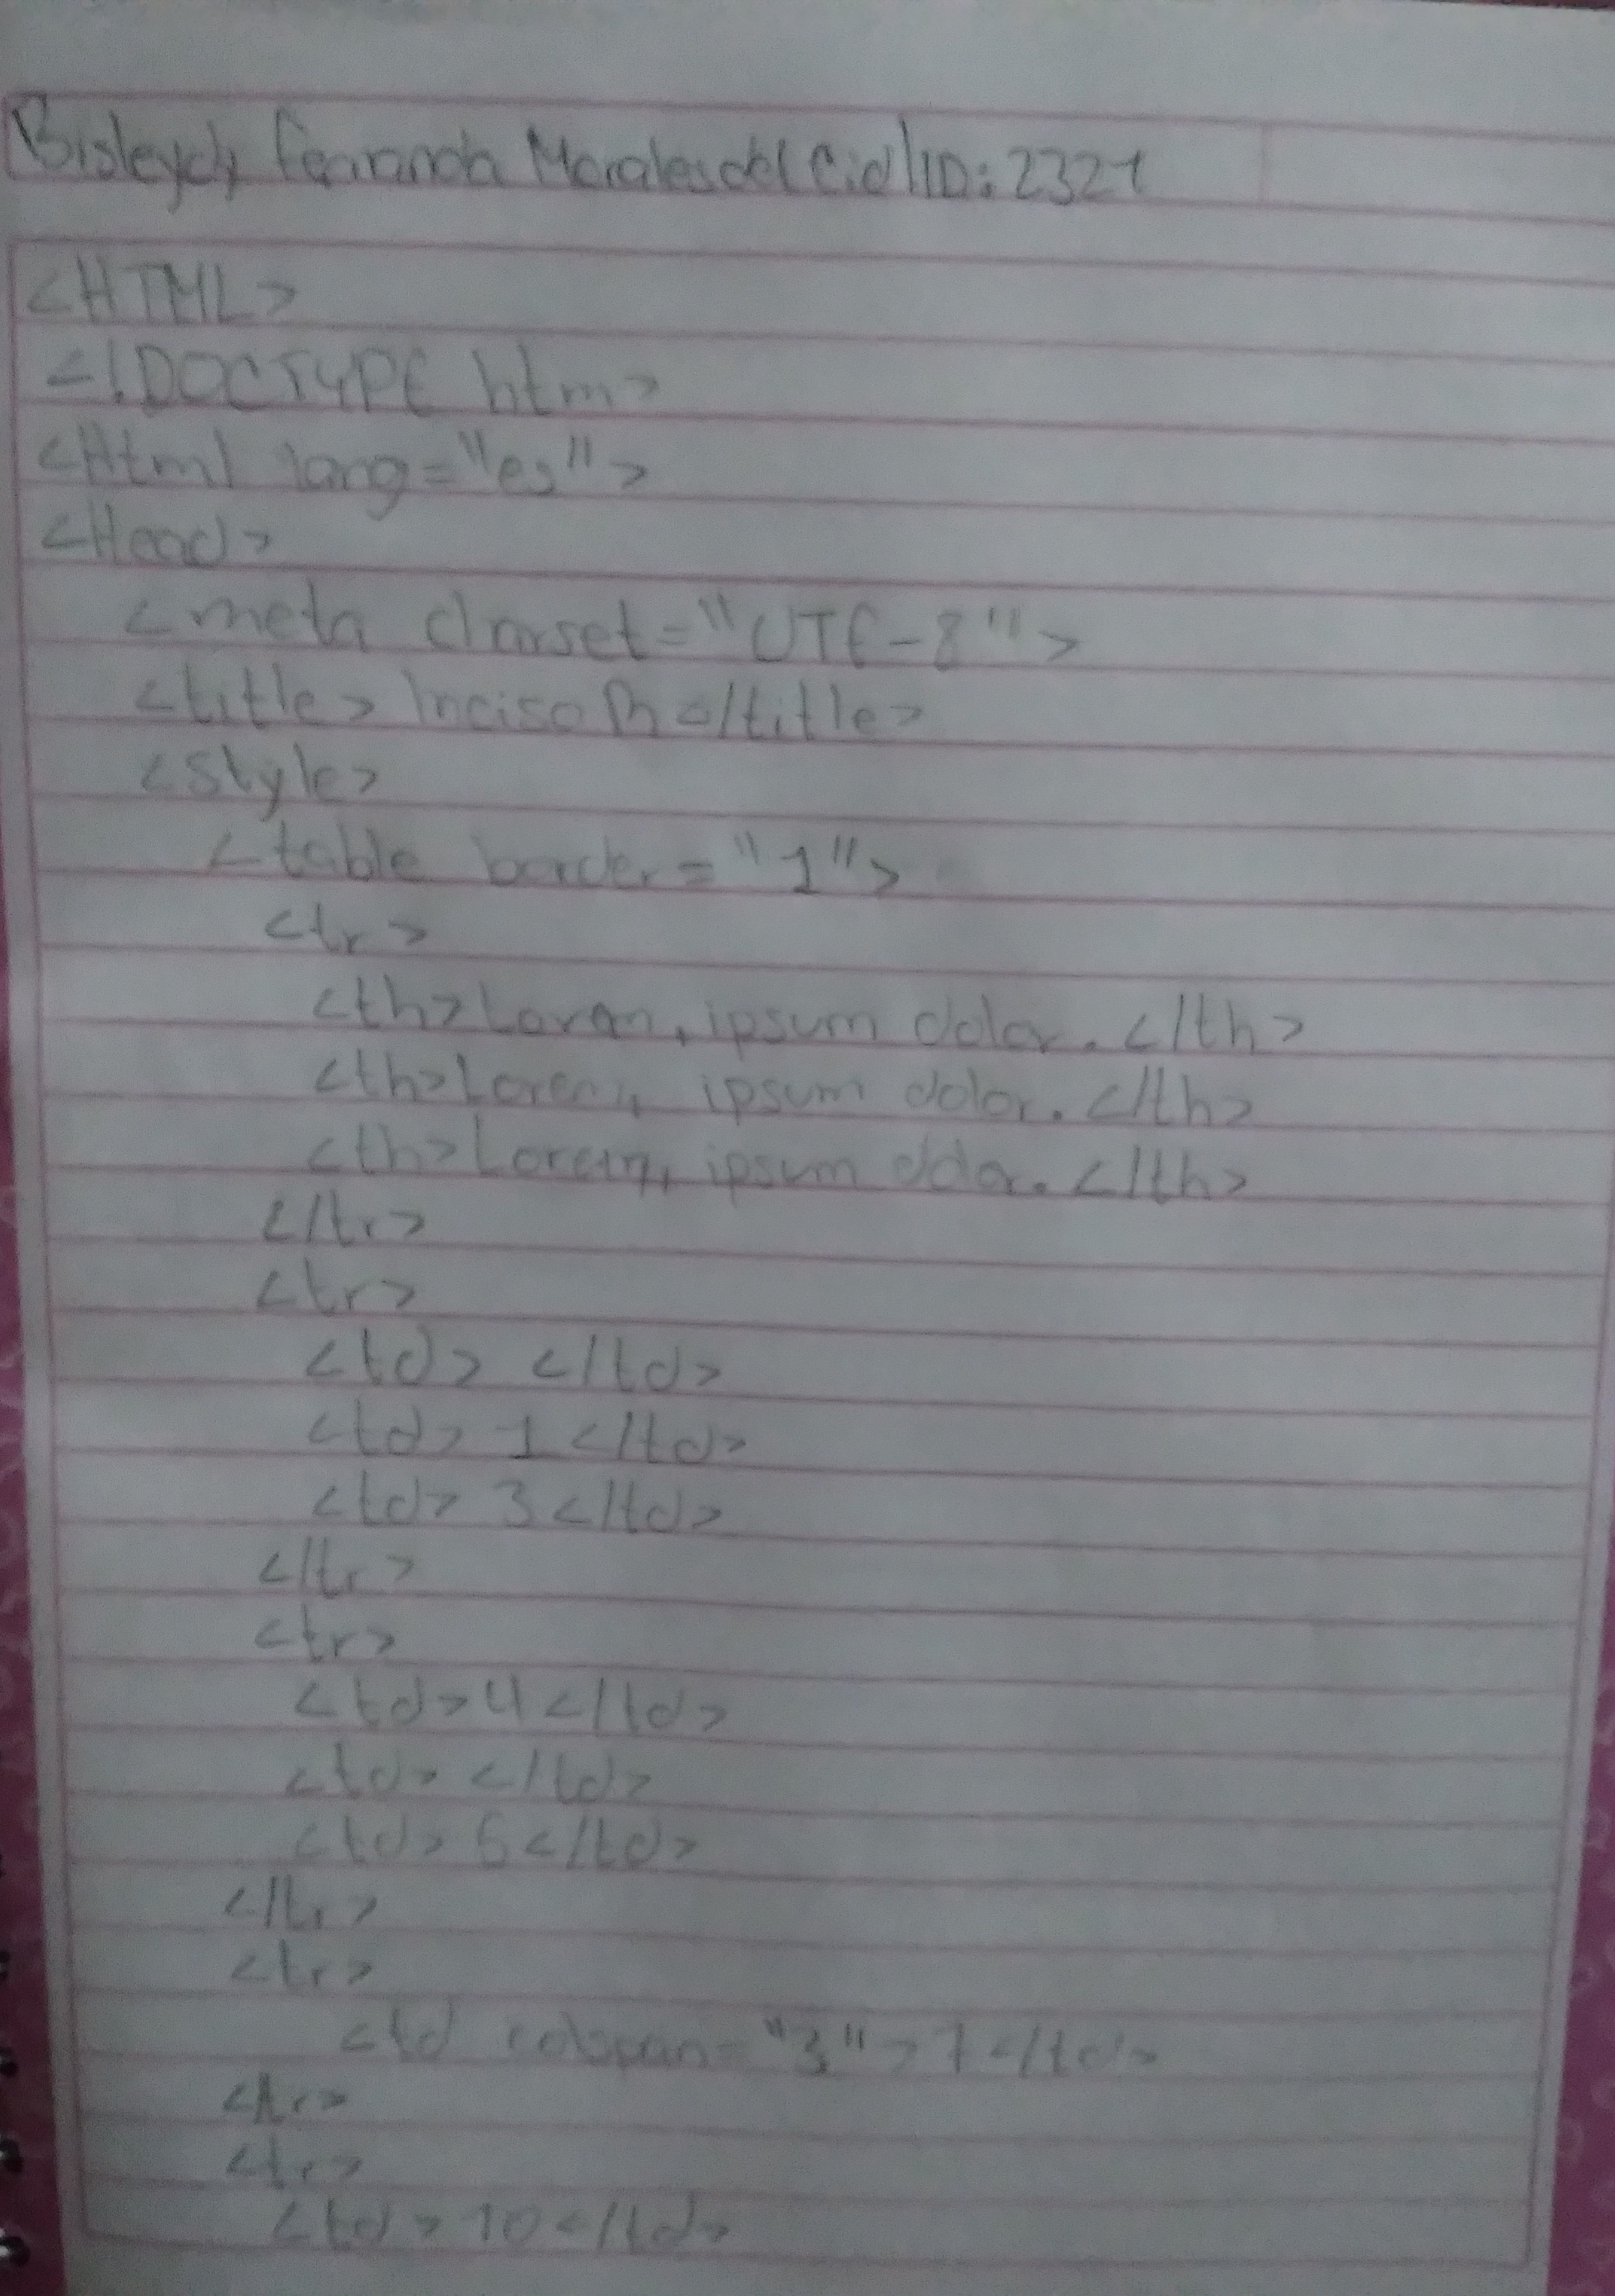 Fernanda Morales del Cid | ID: 2321
<HTML>
<!DOCTYPE htm>
<Html lang="es">
<Head>
<meta charset="UTF-8">
<title> Inciso </title>
<style>
<table border="1">
<tr>
<th>Lorem, ipsum dolor. </th>
<th>Lorem, ipsum dolor. </th>
<th>Lorem, ipsum dolor. </th>
</tr>
<tr>
<td> </td>
<td> 1 </td>
<td> 3 </td>
</tr>
<tr>
<td>4</td>
<td> </td>
<td> 6 </td>
</tr>
<tr>
<td colspan="3">7</td>
<tr>
<tr>
<td>10</td>